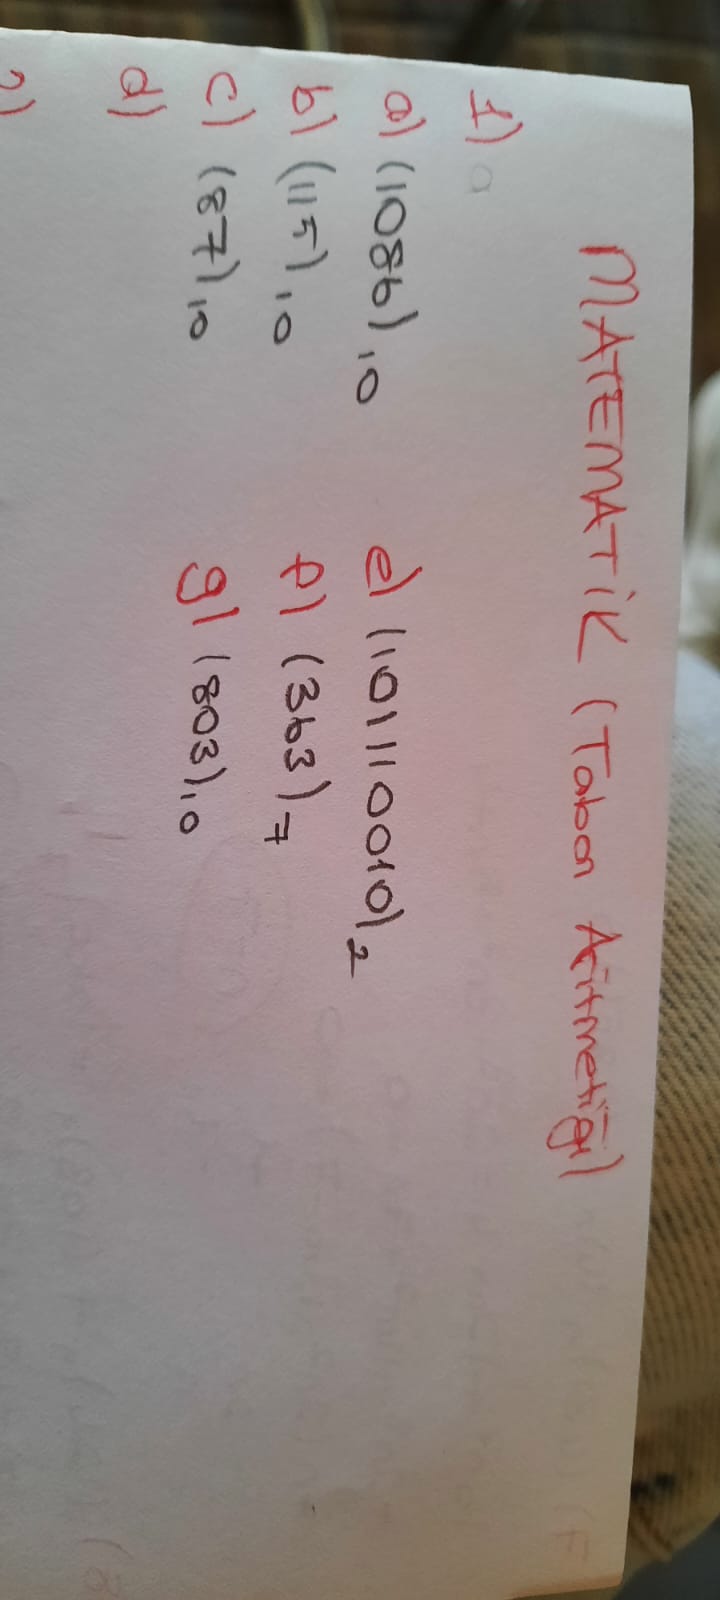 MATEMATİK (Taban Aritmetiği)
1)
a) (1086)10
b) (115)10
c) (87)10
d)
e) (1101110010)2
f) (363)7
g) (803)10
2)